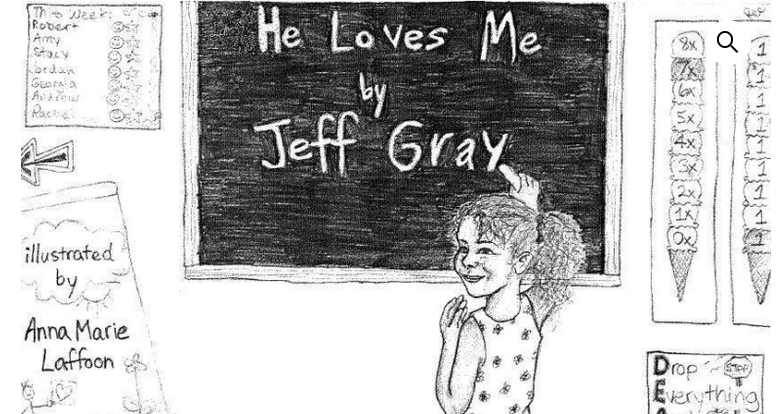 This Week:
Robert
Amy
Stacy
Jordan
Georgia
Andrew
Rachel
He Loves Me
by
Jeff Gray
illustrated
by
Anna Marie
Laffoon
8x
7x
6x
5x
4x
3x
2x
1x
0x
1
1
1
1
1
1
1
1
Drop
STOP
Everything